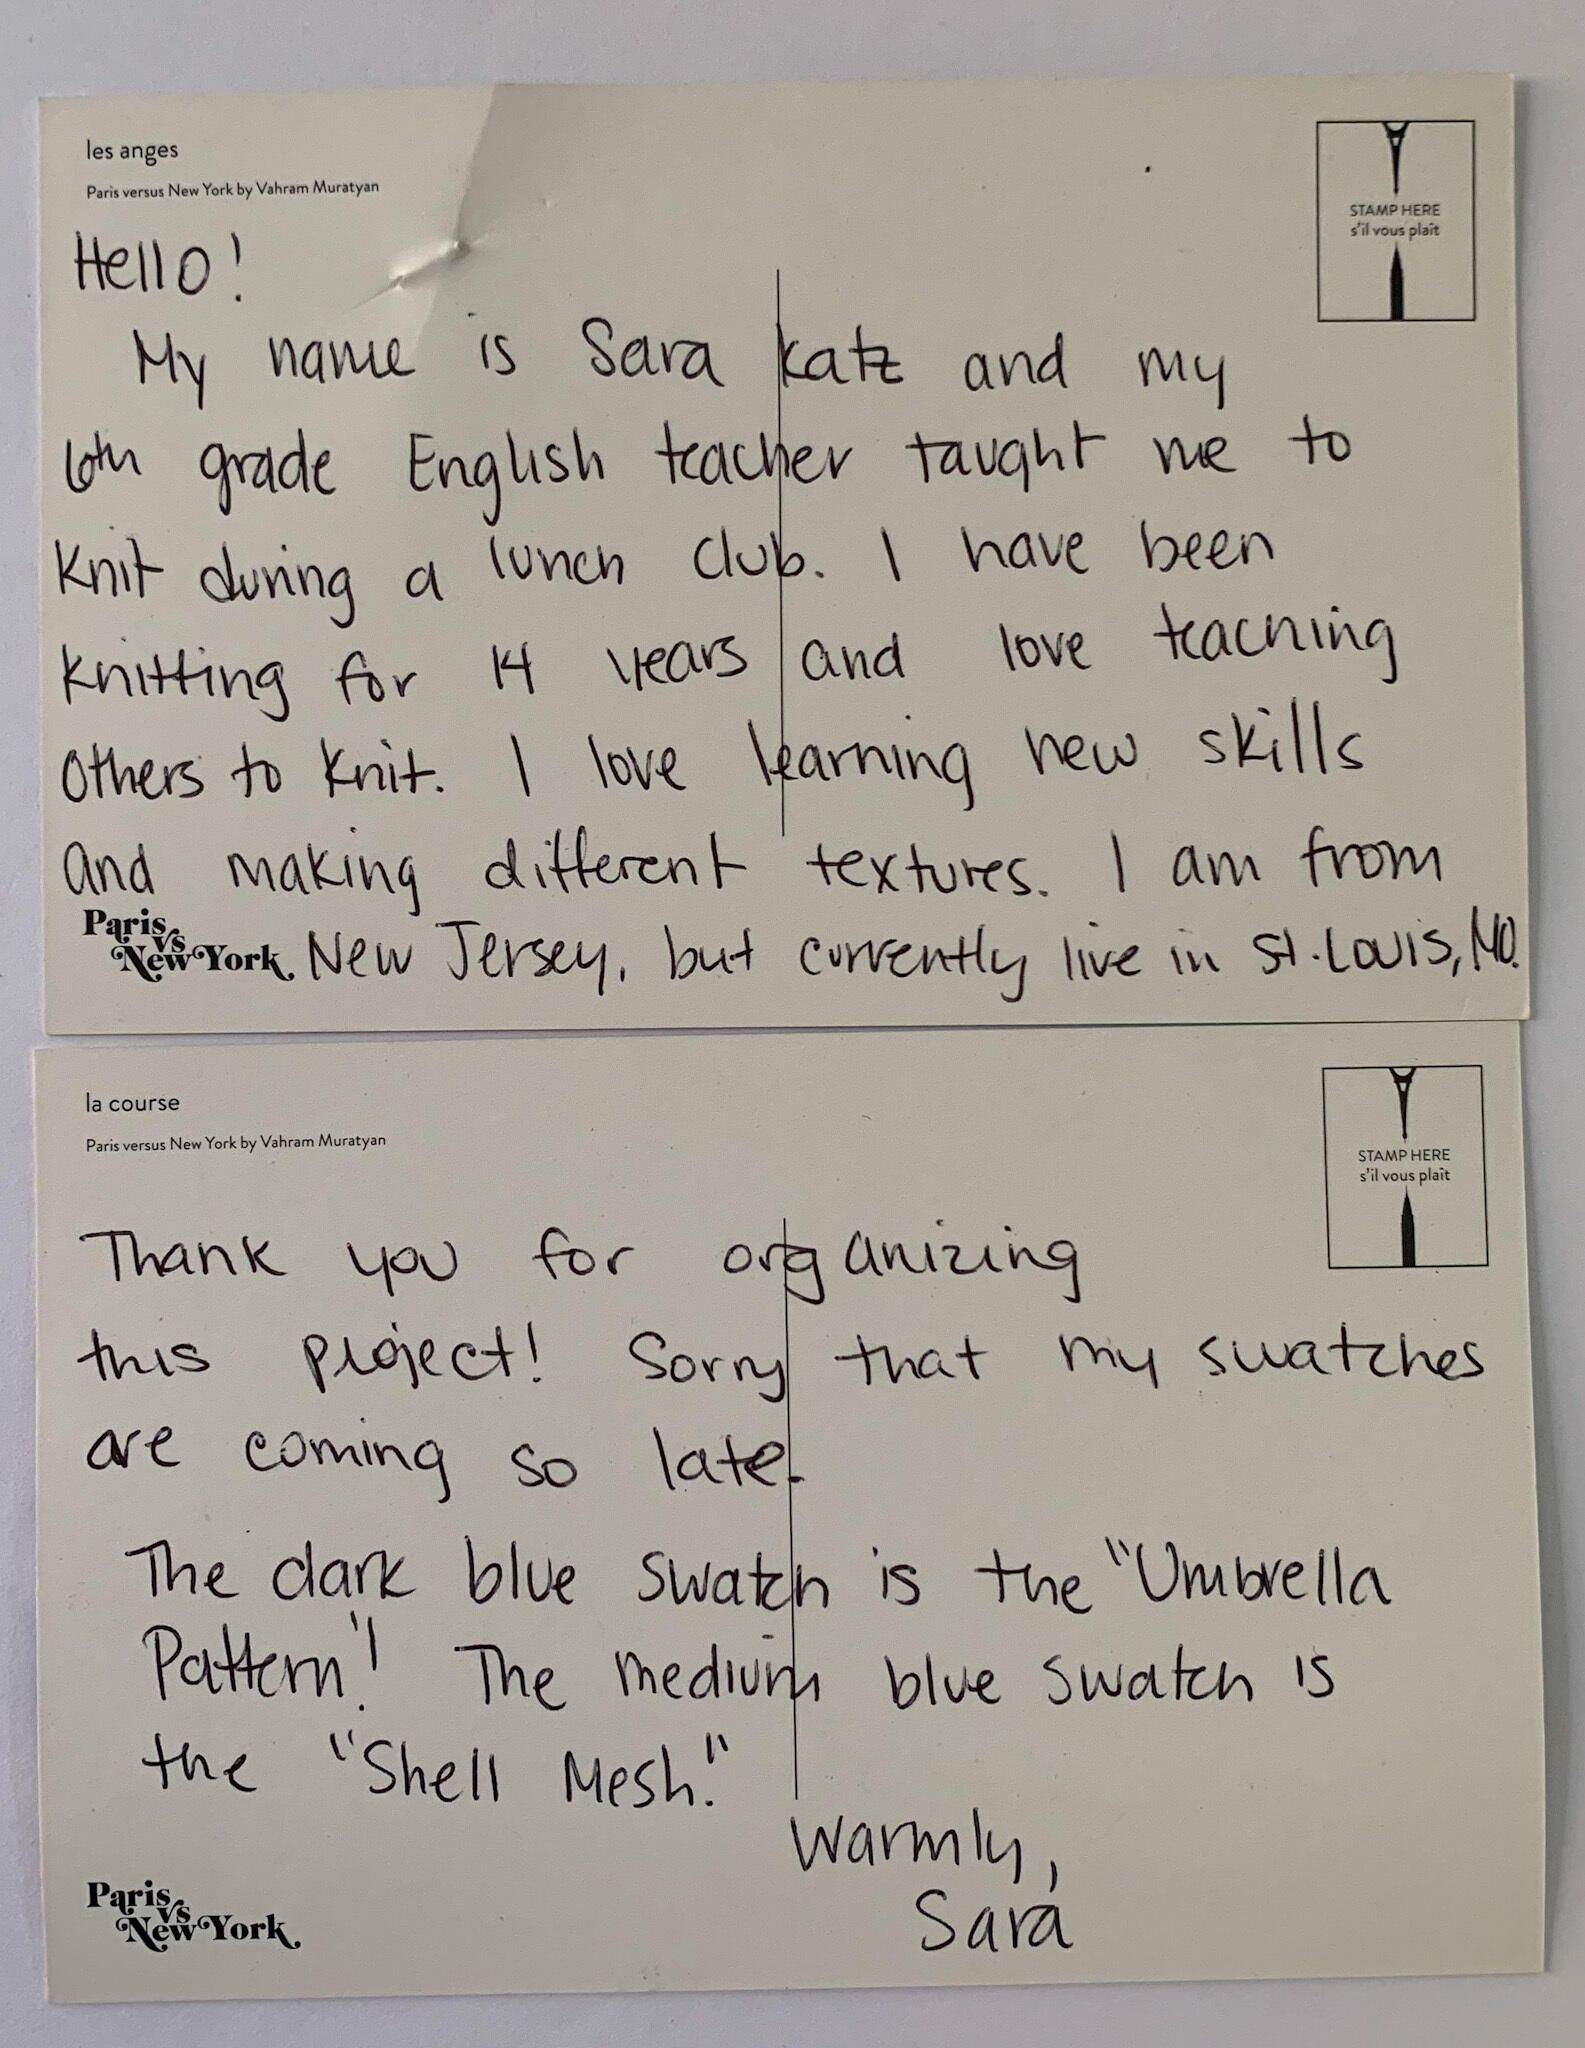 les anges
Paris versus New York by Vahram Muratyan
STAMP HERE
s'il vous plaît
Hello!
My name is Sara Katz and my
6th grade English teacher taught me to
Knit during a lunch club. I have been
knitting for 14 years and love teaching
others to knit. I love learning new skills
and making different textures. I am from
New Jersey, but currently live in St. Louis, MO.
Paris
vs
New York
la course
Paris versus New York by Vahram Muratyan
STAMP HERE
s'il vous plaît
Thank you for organizing
this project! Sorry that my swatches
are coming so late.
The dark blue swatch is the "Umbrella
Pattern". The medium blue swatch is
the "Shell Mesh."
Warmly,
Sara
Paris
vs
New York